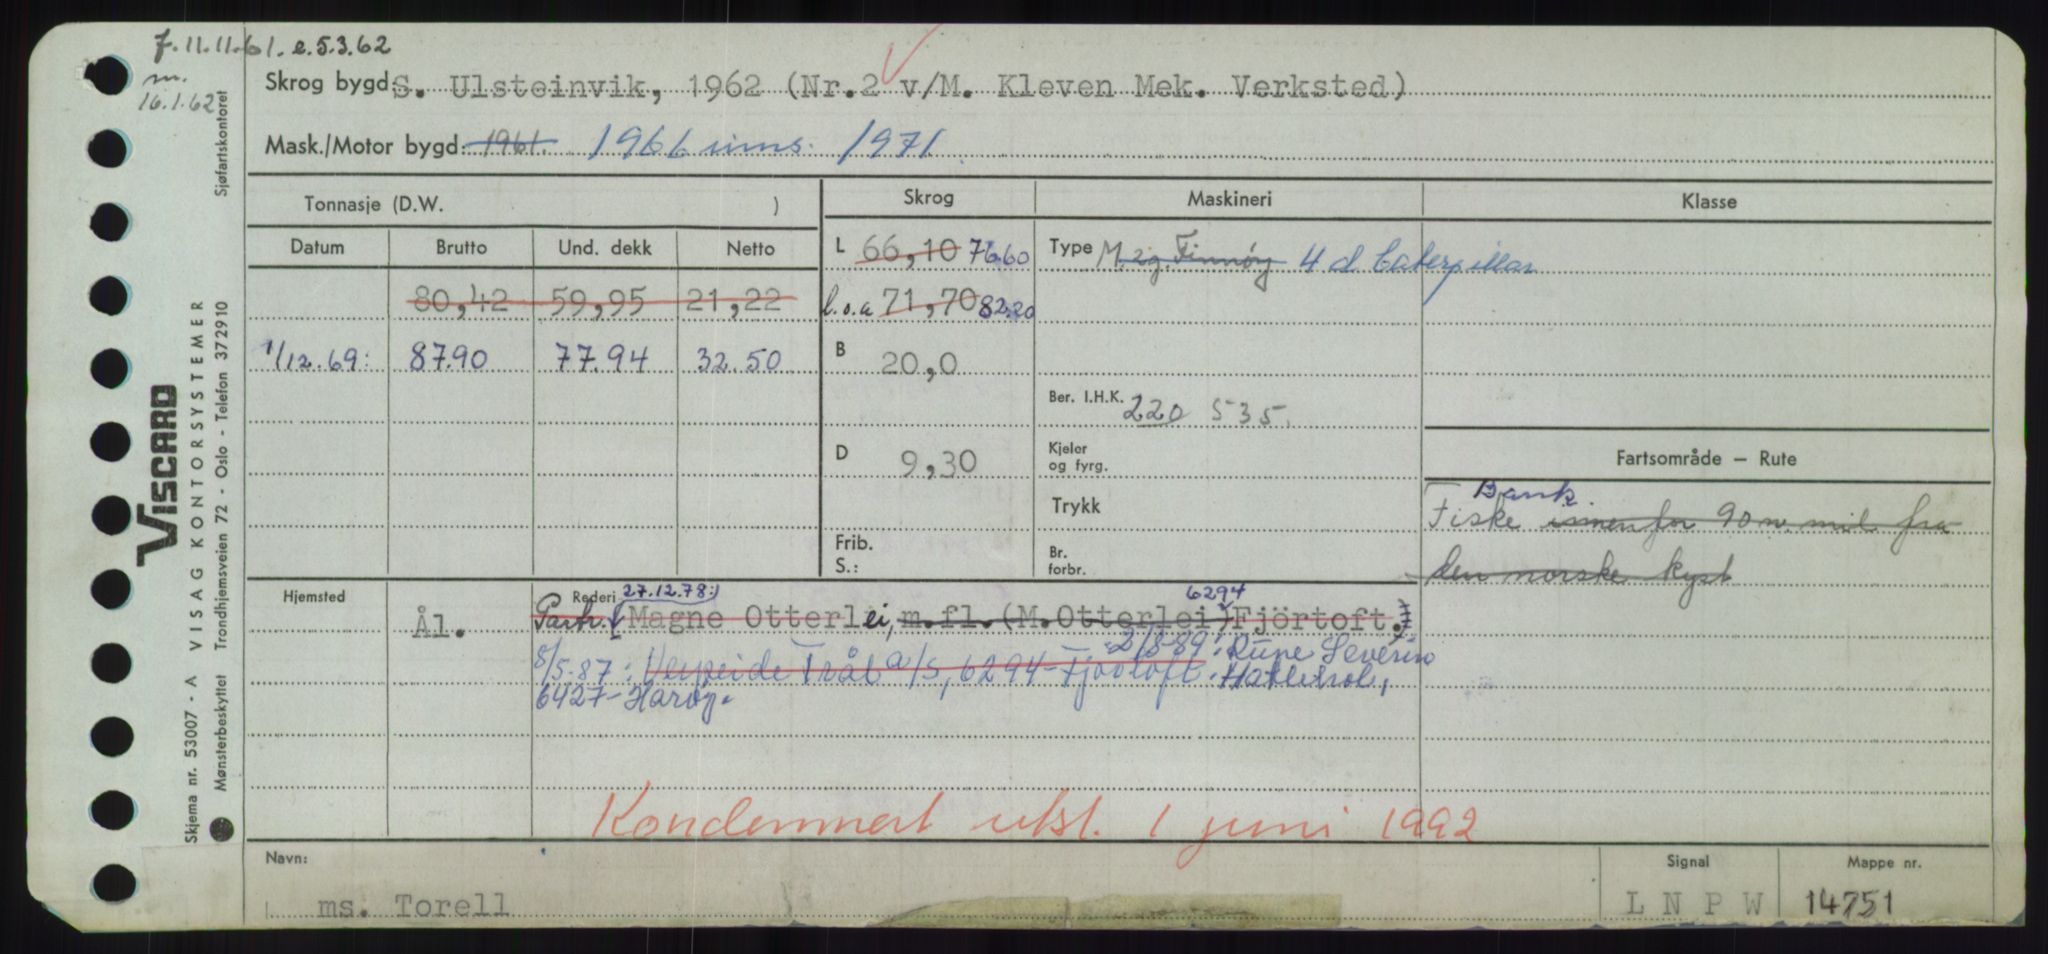 f. 11.11.61. e.5.3.62
m.
16.1.62
Skrog bygd: S. Ulsteinvik, 1962 (Nr.2 v/M. Kleven Mek. Verksted)
Mask./Motor bygd: 1961. 1966 inns. 1971
Tonnasje (D.W. )
Skrog
Maskineri
Klasse
Datum Brutto Und. dekk Netto
L 66,10 76.60
Type M. 2g. Finnøy 4 d Caterpillar
80,42 59,95 21,22
l.o.a 71,70 82.20
1/12.69: 87.90 77.94 32.50
B 20,0
Ber. I.H.K. 220 535.
D 9,30
Kjeler
og fyrg.
Fartsområde – Rute
Trykk
Bank.
Fiske innenfor 90 n. mil fra
den norske kyst
Frib.
S.:
Br.
forbr.
Hjemsted
Ål.
Rederi 27.12.78:) 6294
Partr. (Magne Otterlei, m.fl. (M.Otterlei) Fjörtoft.)
2/8-89: Rune Severin
8/5-87: Trål a/s, 6294-Fjörtoft.
6427-Harøy.
Kondemnert utst. 1 juni 1992
Navn:
ms. Torell
Signal
L N P W
Mappe nr.
14751
Sjøfartskontoret
VISCARD
VISAG KONTORSYSTEMER
Trondhjemsveien 72 - Oslo - Telefon 372910
Skjema nr. 53007 - A
Mønsterbeskyttet